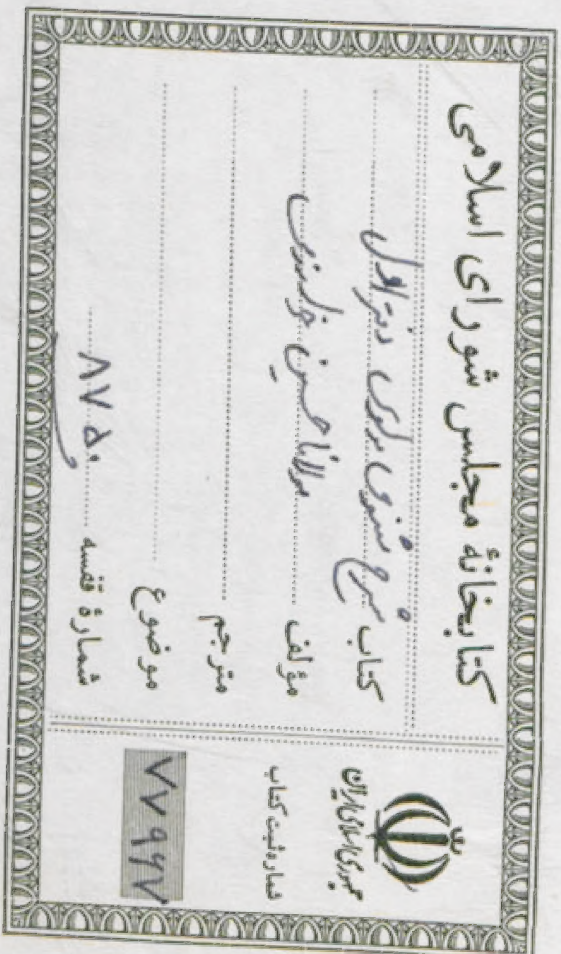 کتابخانهٔ مجلس شورای اسلامی
کتاب شرح مثنوی مولوی دفتر اول
مؤلف مولانا حسین خوارزمی
مترجم
موضوع
شمارهٔ قفسه ۸۷۵۰
جمهوری اسلامی ایران
شماره ثبت کتاب
۷۷۹۶۷